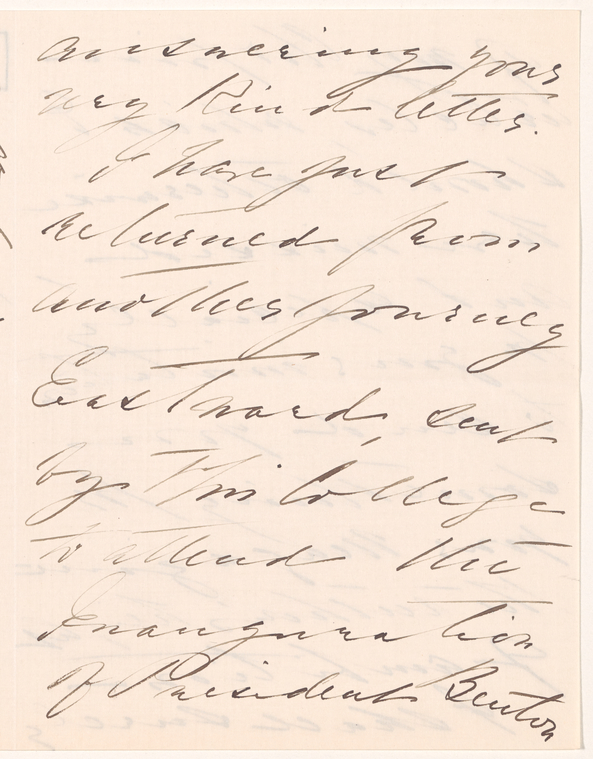 answering your
very kind letter.
I have just
returned from
another journey
Eastward, sent
by this College
to attend the
Inauguration
of President Benton